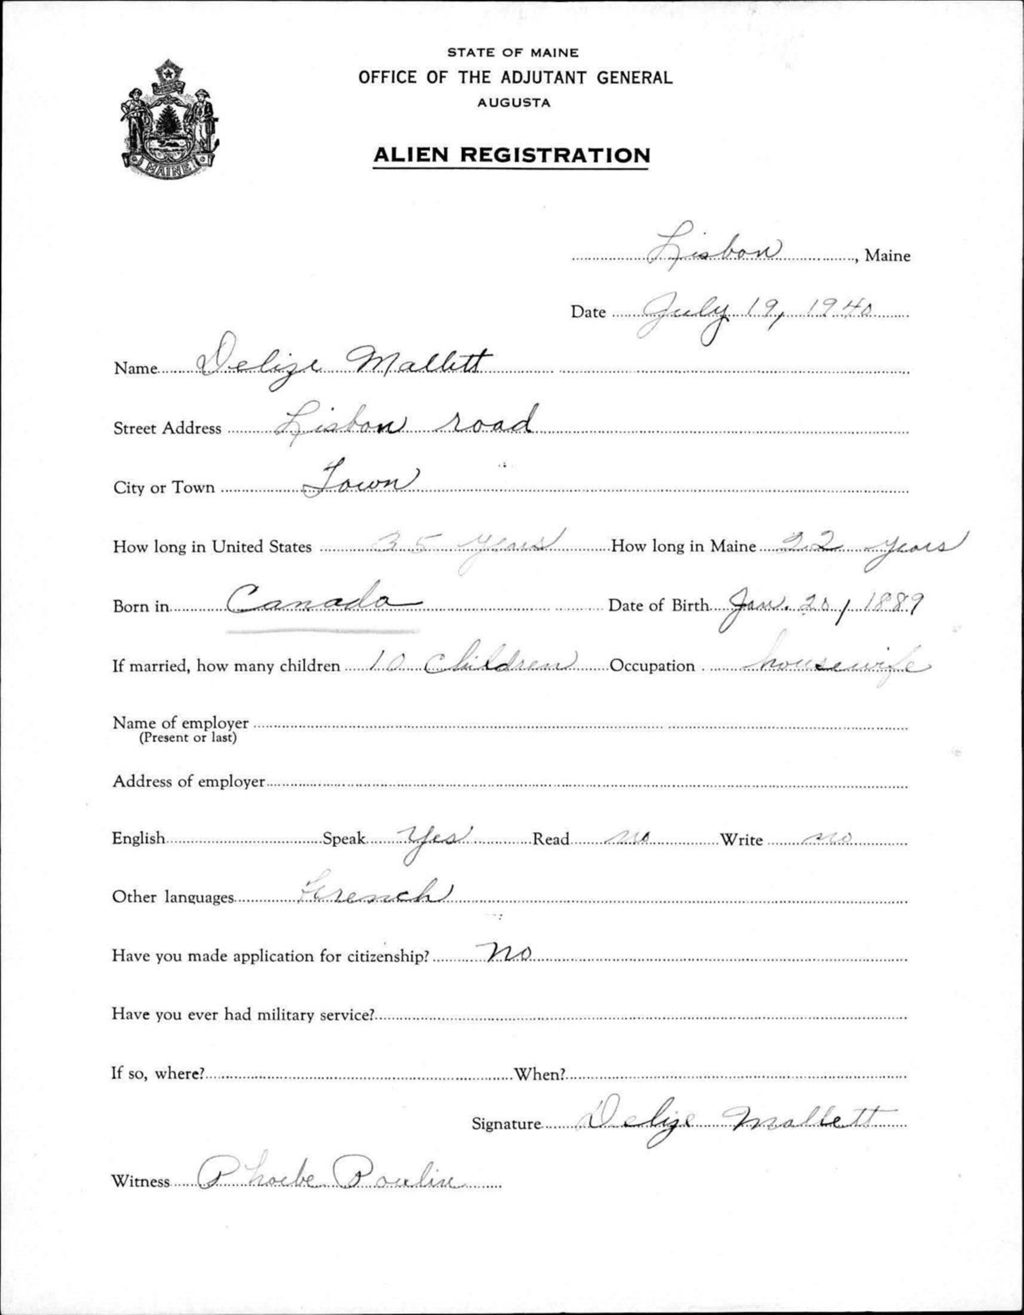 STATE OF MAINE
OFFICE OF THE ADJUTANT GENERAL
AUGUSTA
ALIEN REGISTRATION
MAINE
Lisbon, Maine
Date July 19, 1940
Name Delize Mallett
Street Address Lisbon road
City or Town Town
How long in United States 35 years How long in Maine 22 years
Born in Canada Date of Birth Jan. 20, 1889
If married, how many children 10 children Occupation housewife
Name of employer
(Present or last)
Address of employer
English Speak Yes Read no Write no
Other languages French
Have you made application for citizenship? No
Have you ever had military service?
If so, where? When?
Signature Delize Mallett
Witness Phoebe Poulin